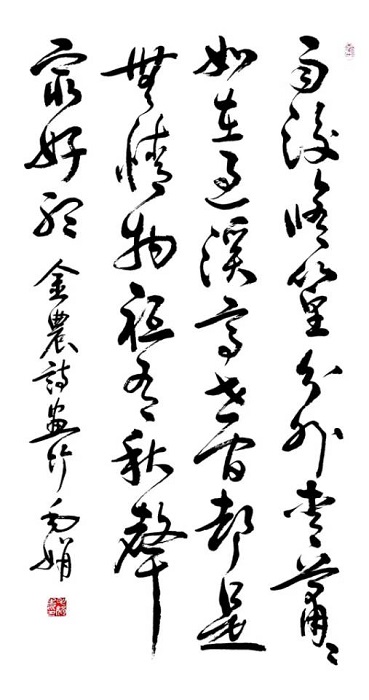 雨後脩篁分外青蕭〻
如在過溪亭世間都是
無情物祗有秋聲
最好聽 金農詩畫竹 娟